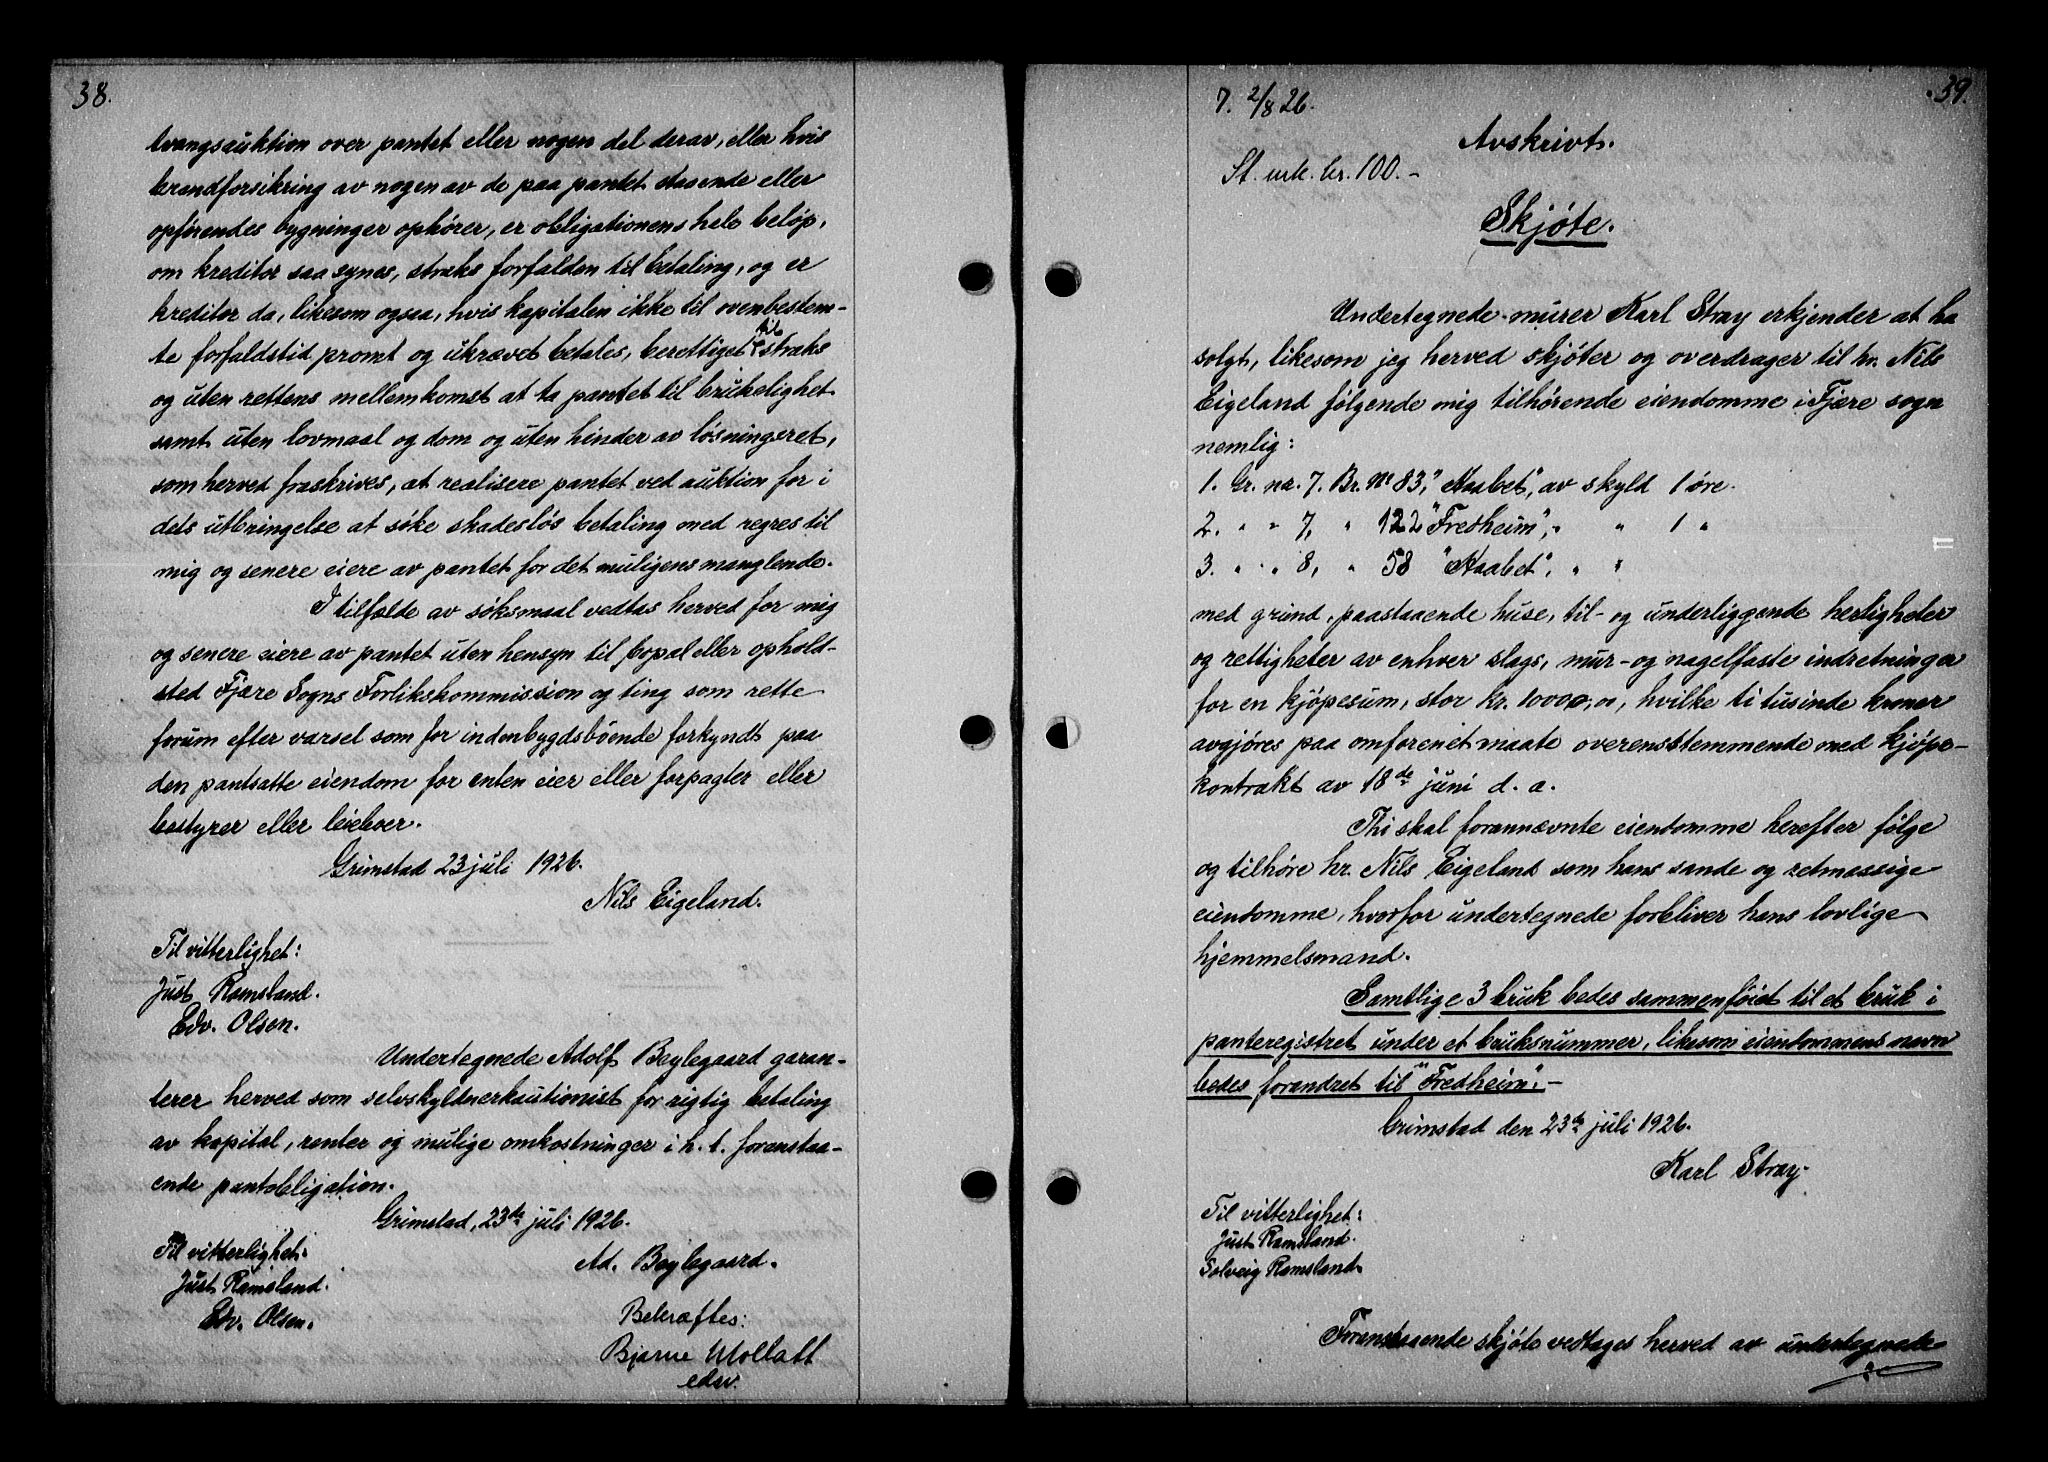 38.
tvangsauktion over pantet eller nogen del derav, eller hvis
brandforsikring av nogen av de paa pantet staaende eller
opførendes bygninger ophører, er obligationens hele beløp,
om kreditor saa synes, straks forfalden til betaling, og er
kreditor da, likesom ogsaa, hvis kapitalen ikke til ovenbestem-
te forfaldstid promt og ukrævet betales, berettiget til straks
og uten rettens mellemkomst at ta pantet til brukelighet
samt uten lovmaal og dom og uten hinder av løsningsret,
som herved fraskrives, at realisere pantet ved auktion for i
dets utbringelse at søke skadesløs betaling med regres til
mig og senere eiere av pantet for det muligens manglende.
I tilfælde av søksmaal vedtas herved for mig
og senere eiere av pantet uten hensyn til bopæl eller ophold-
sted Fjære Sogns Forlikskommission og ting som rette
forum efter varsel som for indenbygdsboende forkyndt paa
den pantsatte eiendom for enten eier eller forpagter eller
bestyrer eller leieboer.
Grimstad 23 juli 1926.
Nils Eigeland.
Til vitterlighet:
Just Ramsland.
Edv. Olsen.
Undertegnede Adolf Bøylegaard garan-
terer herved som selvskyldnerkautionist for rigtig betaling
av kapital, renter og mulige omkostninger i h. t. forenstaa-
ende pantobligation.
Grimstad, 23de juli 1926.
Til vitterlighet:
Ad. Bøylegaard.
Just Ramsland.
Edv. Olsen.
Bekræftes:
Bjarne Mollatt
edsv.
39.
7. 2/8 26.
Avskrivt.
St. mrk. kr. 100.-
Skjøte.
Undertegnede murer Karl Stray erkjender at ha
solgt, likesom jeg herved skjøter og overdrager til hr. Nils
Eigeland følgende mig tilhørende eiendomme i Fjære sogn
nemlig:
1. Gr. nr. 7. Br. Nr 83, "Haabet", av skyld 1 øre.
2. " " 7, " 122 "Fredheim", " " 1 "
3. " " 8, " 58 "Haabet", " "
med grund, paastaaende huse, til- og underliggende herligheter
og rettigheter av enhver slags, mur- og nagelfaste indretninger
for en kjøpesum, stor kr. 10000,00, hvilke ti tusinde kroner
avgjøres paa omforenet maate overensstemmende med kjøpe-
kontrakt av 18de juni d. a.
Thi skal forannævnte eiendomme herefter følge
og tilhøre hr. Nils Eigeland som hans sande og retmæssige
eiendomme, hvorfor undertegnede forbliver hans lovlige
hjemmelsmand.
Samtlige 3 bruk bedes sammenføiet til et bruk i
panteregistret under et bruksnummer, likesom eiendommens navn
bedes forandret til "Fredheim".-
Grimstad den 23de juli 1926.
Karl Stray
Til vitterlighet:
Just Ramsland.
Solveig Ramsland
Foranstaaende skjøte vedtages herved av undertegnede